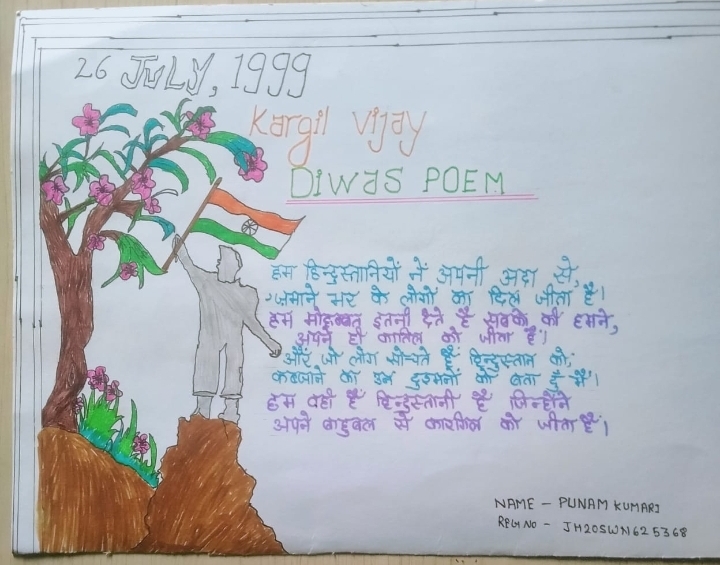 26 JULY, 1999
Kargil Vijay
DIWAS POEM
हम हिन्दुस्तानियों ने अपनी अदा से,
जमाने भर के लोगों का दिल जीता है।
हम मोहब्बत इतनी देते है सबको की हमने,
अपने ही कातिल को जीता है।
और जो लोग सोचते है हिन्दुस्तान को,
कब्जाने का उन दुश्मनों को बता दूँ मैं।
हम वही है हिन्दुस्तानी है जिन्होंने
अपने बाहुबल से कारगिल को जीता है।
NAME - PUNAM KUMARI
REG NO - JH20SWN625368